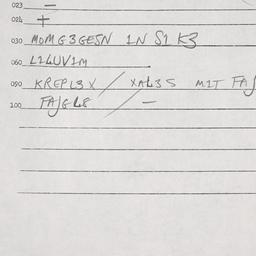 023 –
024 +
030 MOMG3GESN 1N S1 K3
060 L14UV1M
090 KREPL3X / XAL3S M1T FAJ
100 FAJGL8 / –